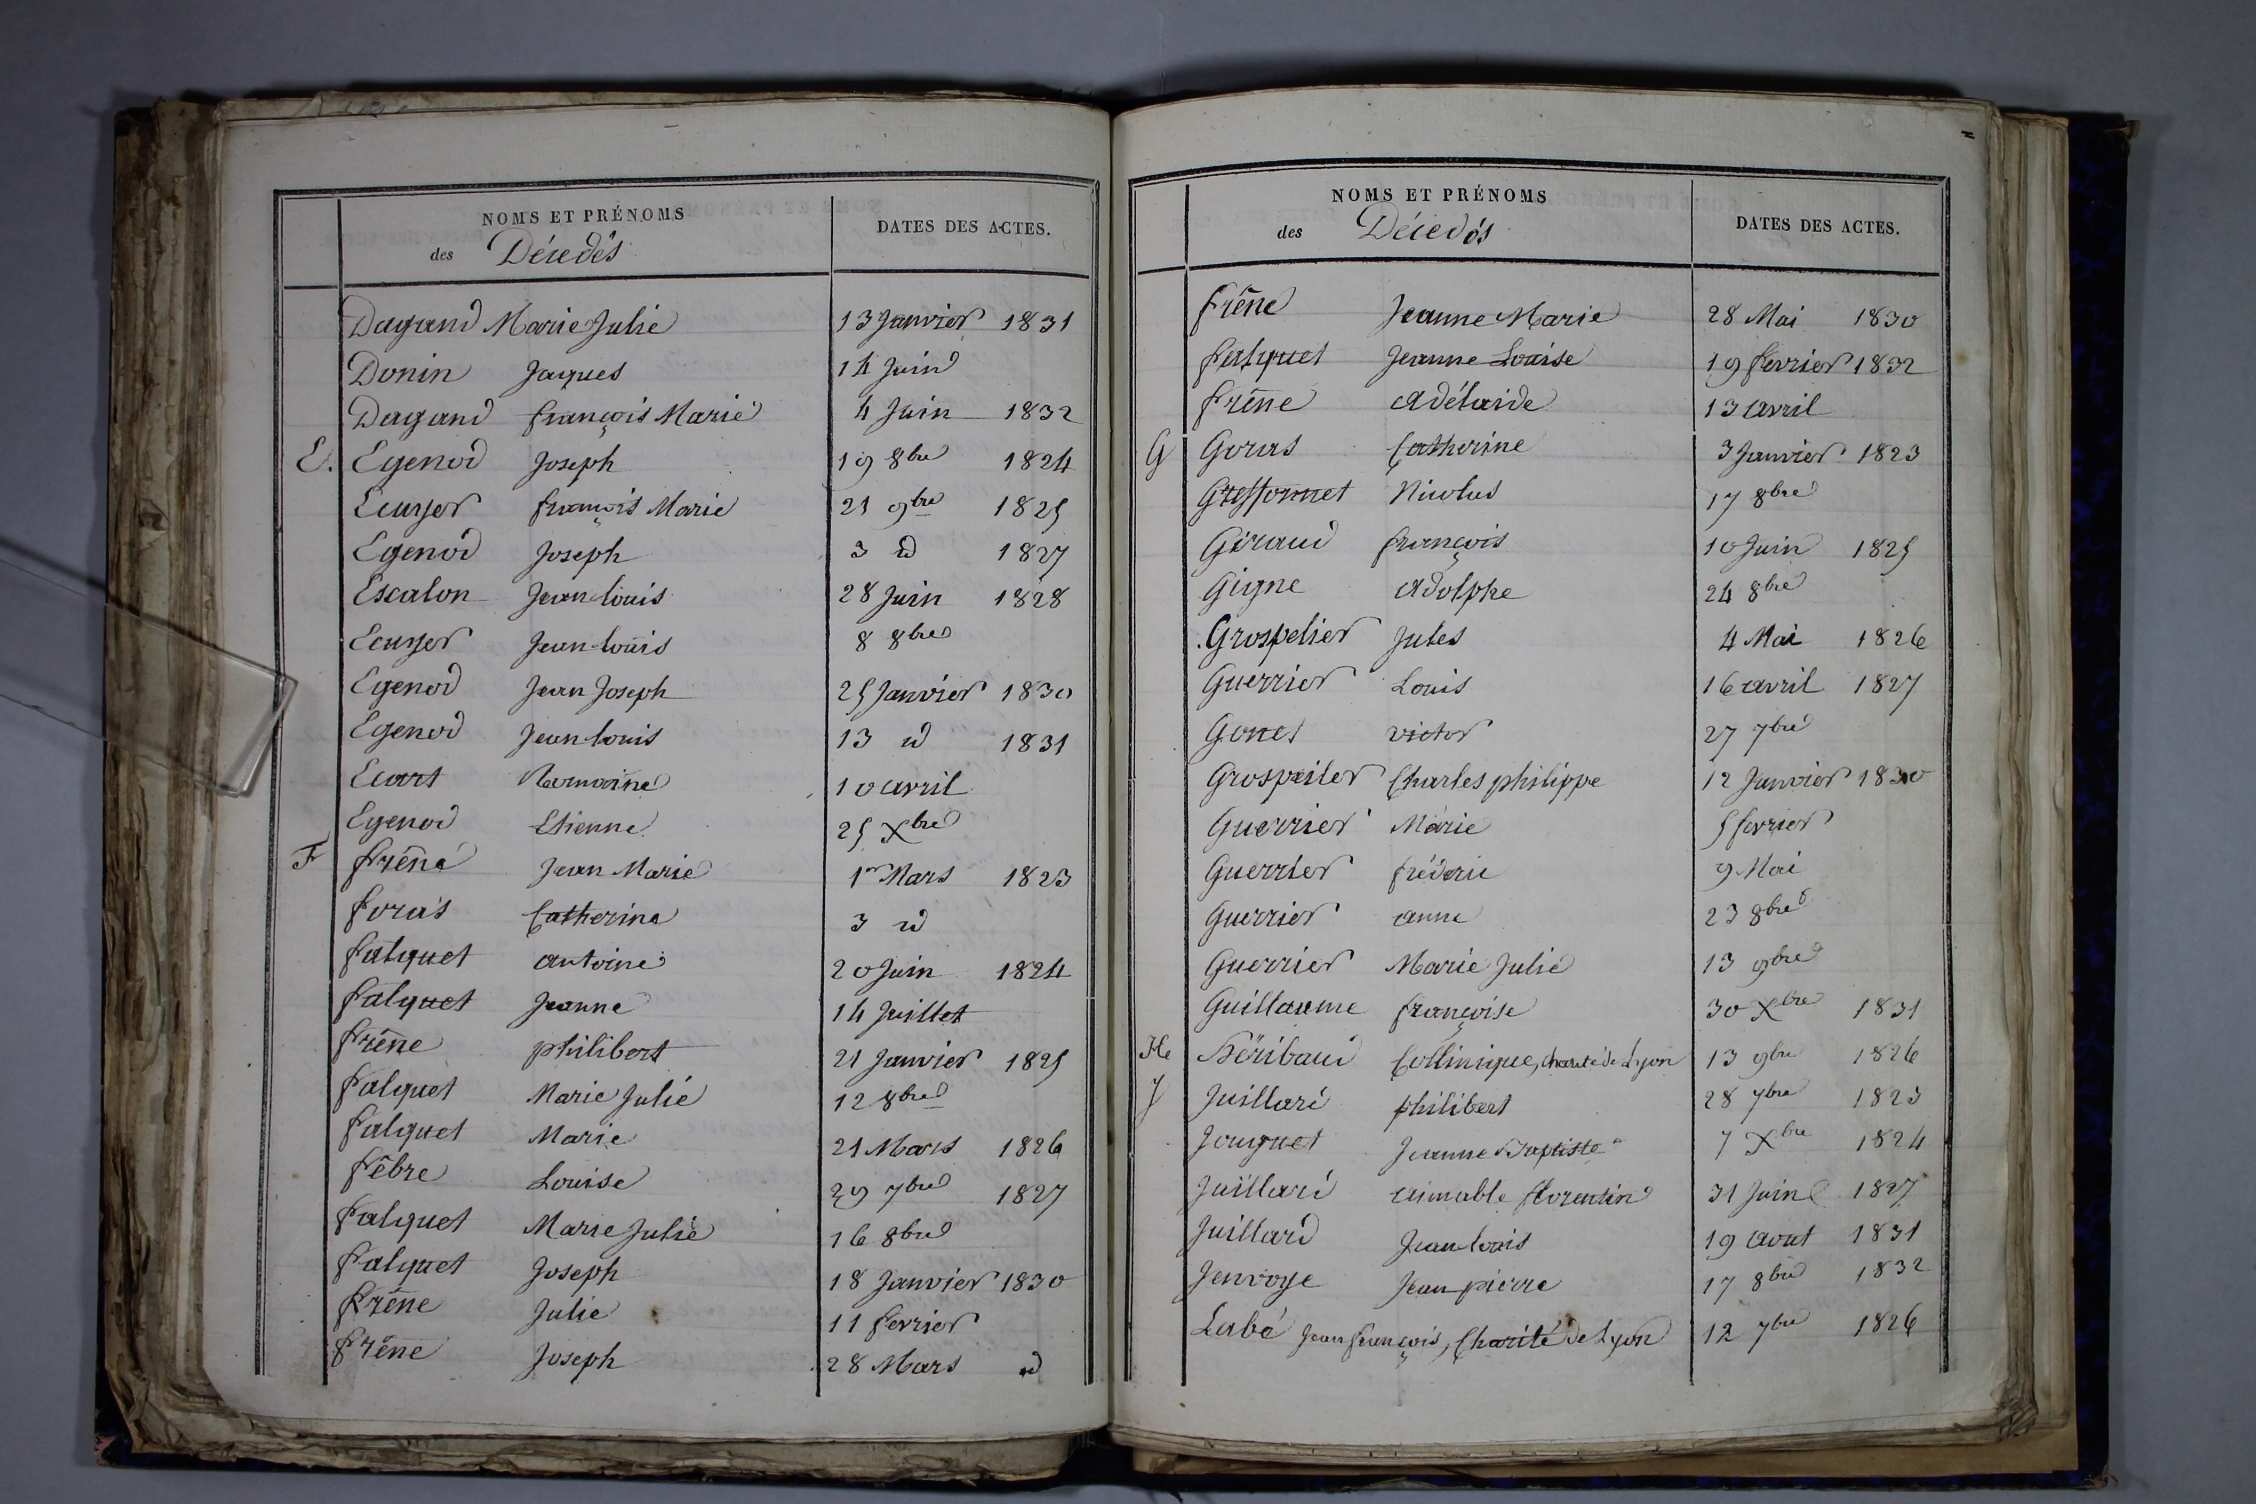 NOMS ET PRÉNOMS
des Décedés
DATES DES ACTES.
Dagand Marie Julie 13 Janvier 1831
Donin Jaques 14 Juin
Dagand françois Marie 4 Juin 1832
E. Egenod Joseph 19 8bre 1824
Ecuyer françois Marie 21 9bre 1825
Egenod Joseph 3 id 1827
Escalon Jean louis 28 Juin 1828
Ecuyer Jean-louis 8 8bre
Egenod Jean Joseph 25 Janvier 1830
Egenod Jean louis 13 id 1831
Ecart Romaine 10 avril
Egenod Etienne 25 Xbre
F frêne Jean Marie 1er Mars 1823
foras Catherine 3 id
falquet antoine 20 Juin 1824
falquet Jeanne 14 Juillet
frêne philibert 21 Janvier 1825
falquet Marie Julie 12 8bre
falquet Marie 21 Mars 1826
fêbre Louise 29 7bre 1827
falquet Marie Julie 16 8bre
falquet Joseph 18 Janvier 1830
frêne Julie 11 fevrier
frêne Joseph 28 Mars id
NOMS ET PRÉNOMS
des Décedés
DATES DES ACTES.
frêne Jeanne Marie 28 Mai 1830
falquet Jeanne Louise 19 fevrier 1832
frêne adélaide 13 avril
G Goras Catherine 3 Janvier 1823
Gressonnet Nicolas 17 8bre
Giraud françois 10 Juin 1825
Gigne adolphe 24 8bre
Grospelier Jules 4 Mai 1826
Guerrier Louis 16 avril 1827
Gonet victor 27 7bre
Grospeiler Charles philippe 12 Janvier 1830
Guerrier Marie 5 fevrier
Guerrier fréderic 9 Mai
Guerrier anne 23 8bre
Guerrier Marie Julie 13 9bre
Guillaume françoise 30 Xbre 1831
H Héribaud Collinique, charité de Lyon 13 9bre 1826
J Juillard philibert 28 7bre 1823
Jouguet Jeanne Baptiste 7 Xbre 1824
Juillard aimable florentin 31 Juin 1827
Juillard Jean louis 19 aout 1831
Jenvoye Jean pierre 17 8bre 1832
Labé Jean françois, Charité de Lyon 12 7bre 1826